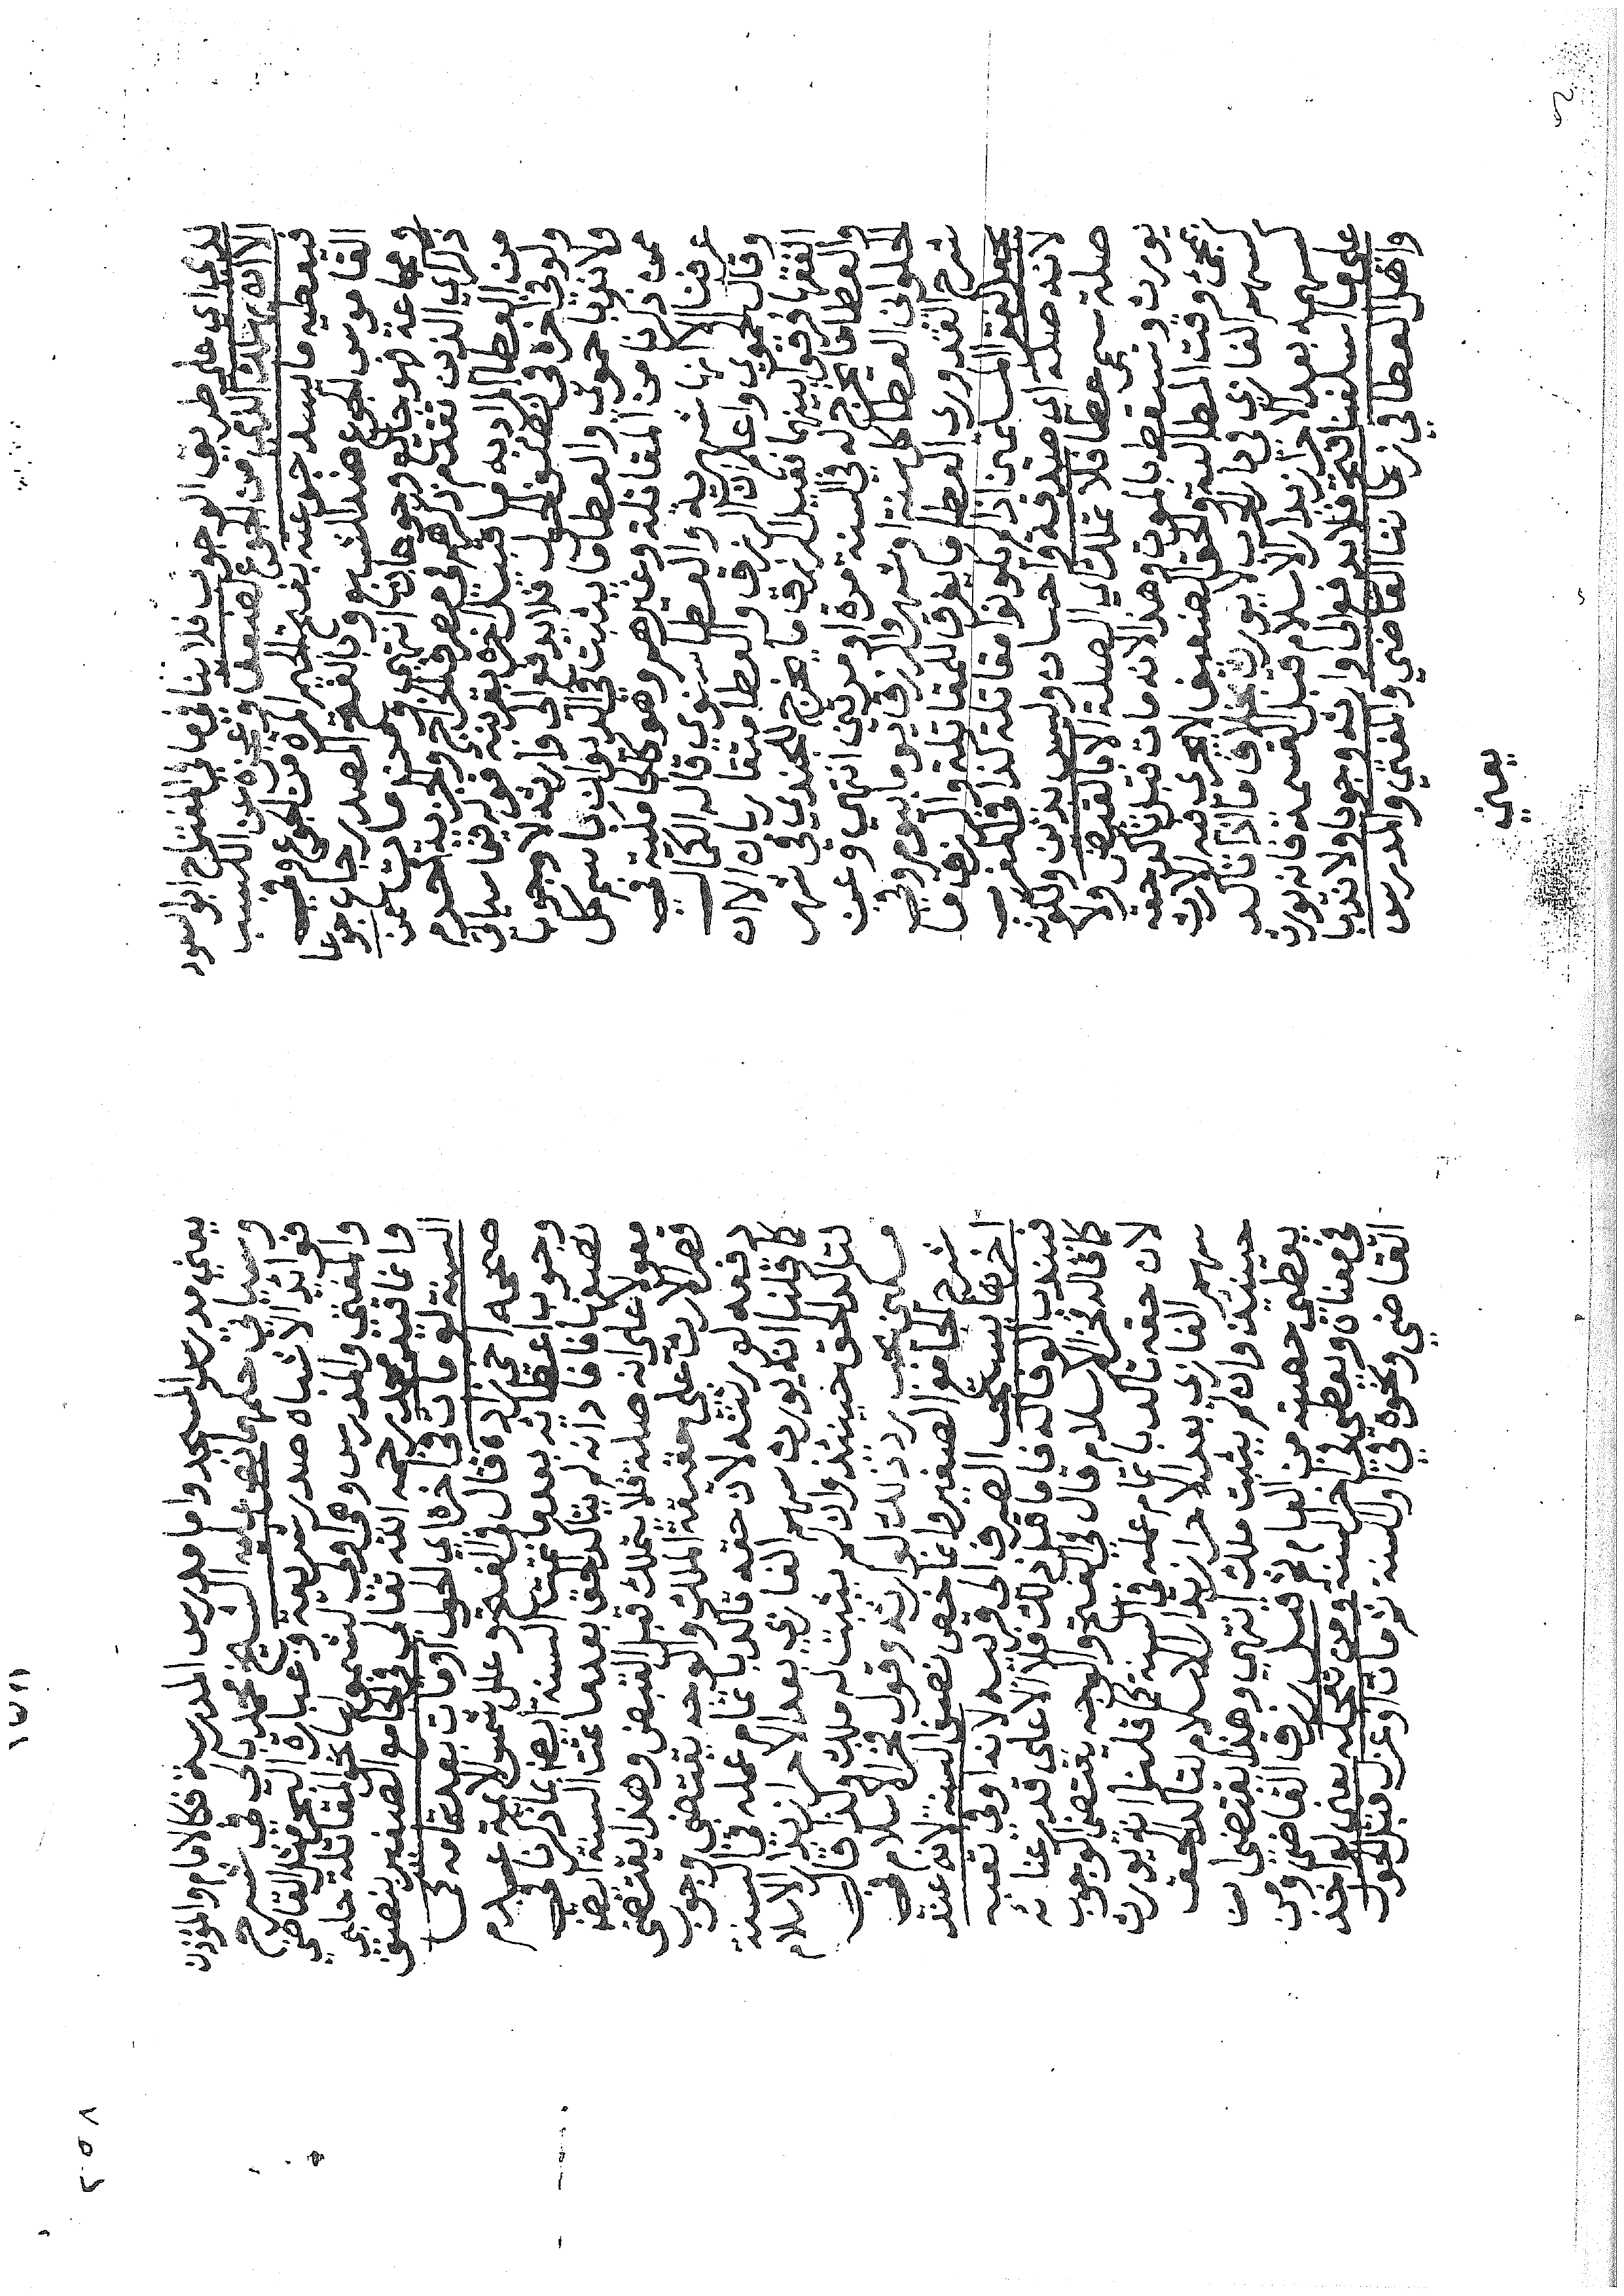 لدى اي على طريق الوجوب فلا ينافي ما في المفتاح ابو السعود
الا ان يهلك الذمي من الجوع لضعفه او عجزه عن الكسب
فيعطيه ما يسد جوعته بفتح الجيم المرة من الجوع وفي
القاموس الجوع ضد الشبع وبالفتح المصدر جاع جوعا
ومجاعة فهو جائع وجوعان انتهى ومن مات ممن
ذكر اي الذين تقدم ذكرهم في مصرف الخراج والجزية
من العطا المراد به ما قبيل اخره بقرينة قوله فيما سياتي
ولو في اخره في نصف الحول فلا يدفع الى وارثه لا وجوبا
ولا ندبا حموي والعطا ما يثبت في الديوان باسم كل
من ذكرنا من المقاتلة وغيرهم وهو كالجامكية في
عرفنا الا انها شهرية والعطا سنوي قاله الكمال
وقال الحموي واعلم ان الرزق والعطا متقاربان الا ان
الفقها فرقوا بينهما فقيل الرزق ما يخرج للجندي في شهر
والعطا ما يخرج له في السنة مرة او مرتين انتهى وعن
الحلواني العطا كل سنة او شهر والرزق يوما بيوم وفي
شرح القدوري العطا ما يفرق للمقاتلة والرزق ما
يجعل لفقرا المسلمين اذا لم يكونوا مقاتلة كذا في المغرب
لانه صلة اي صدقة واحسان وليس بدين ولكونه
صلة سمي عطا فلا يملك اي الصلة الا بالقبض ولا
يورث ويسقط بالموت وهذا لانه مات قبل تاكد حقه
بمجئ وقت المطالبة والحق الضعيف لا يجري فيه الارث
كسهم الغازي في دار الحرب لا يورث بخلاف ما اذا تاكد
كسهمه بعد الاحراز بدار الاسلام قبل القسمة فانه يورث
على ما اسلفنا فتح فلا يدفع الى وارثه وجوبا ولا ندبا
واهل العطا في زماننا القاضي والمفتي والمدرس
يعني
يعني مدرس المسجد واما مدرس المدرسة فكالامام والمؤذن
وسياتي حكمها نص عليه الشيخ محمد باكي في شرح
فوائد الاشباه صدر شريعة وعبارة البحر مثل القاضي
والمفتي والمدرس وهي اولى لشمولها نحو المقاتلة حلبي
وانما قيد محمد رحمه الله تعالى في الجامع الصغير بنصف
السنة لو مات في اخره اي الحول او مات بعد تمامه كما
صححه اخي زاده قال في الفتح وعلل شمس الائمة عدم
وجوب اعطائه بعد ما تمت السنة ايضا بما ذكرنا في
نصفها فافاد انه لم يتاكد الحق بعد ما تمت السنة ايضا
بعولا على انه صلة فلا يتملك قبل القبض وهذا يقتضي
قصر الارث على حقيقة الملك والوجه يقتضي وجوب
دفعه لورثته لان حقه تاكد باتمام عمله في السنة
كما قلنا انه يورث سهم الغازي بعد الاحراز بدار الاسلام
لتاكد الحق حينئذ وان لم يثبت له ملك ولذا قال
مسكين يجب رد ذلك لوارثه وقول فخر الاسلام في
شرح الجامع الصغير وانما خص نصف السنة لانه عند
اخرها يستحب الصرف الى قريبه لانه اوفى تعبه
فيندب الوفا له فاما قبل ذلك فلا الا على قدر عنائه
كما قاله فخر الاسلام قال في الفتح والوجه يقتضي الوجوب
لان حقه تاكد باتمام عمله في السنة كما قلنا انه يورث
سهم الغازي بعد الاحراز بدار الاسلام لتاكد الحق
حينئذ وان لم يثبت ملك انتهى وهذا يقتضي ان
يعطى حصته من العام ثم قيل رزق القاضي ومن
في معناه ويعطى في اخر السنة ومن تعجله يعني لو اخذ
القاضي ونحوه في اول السنة ثم مات او عزل قبل الحول